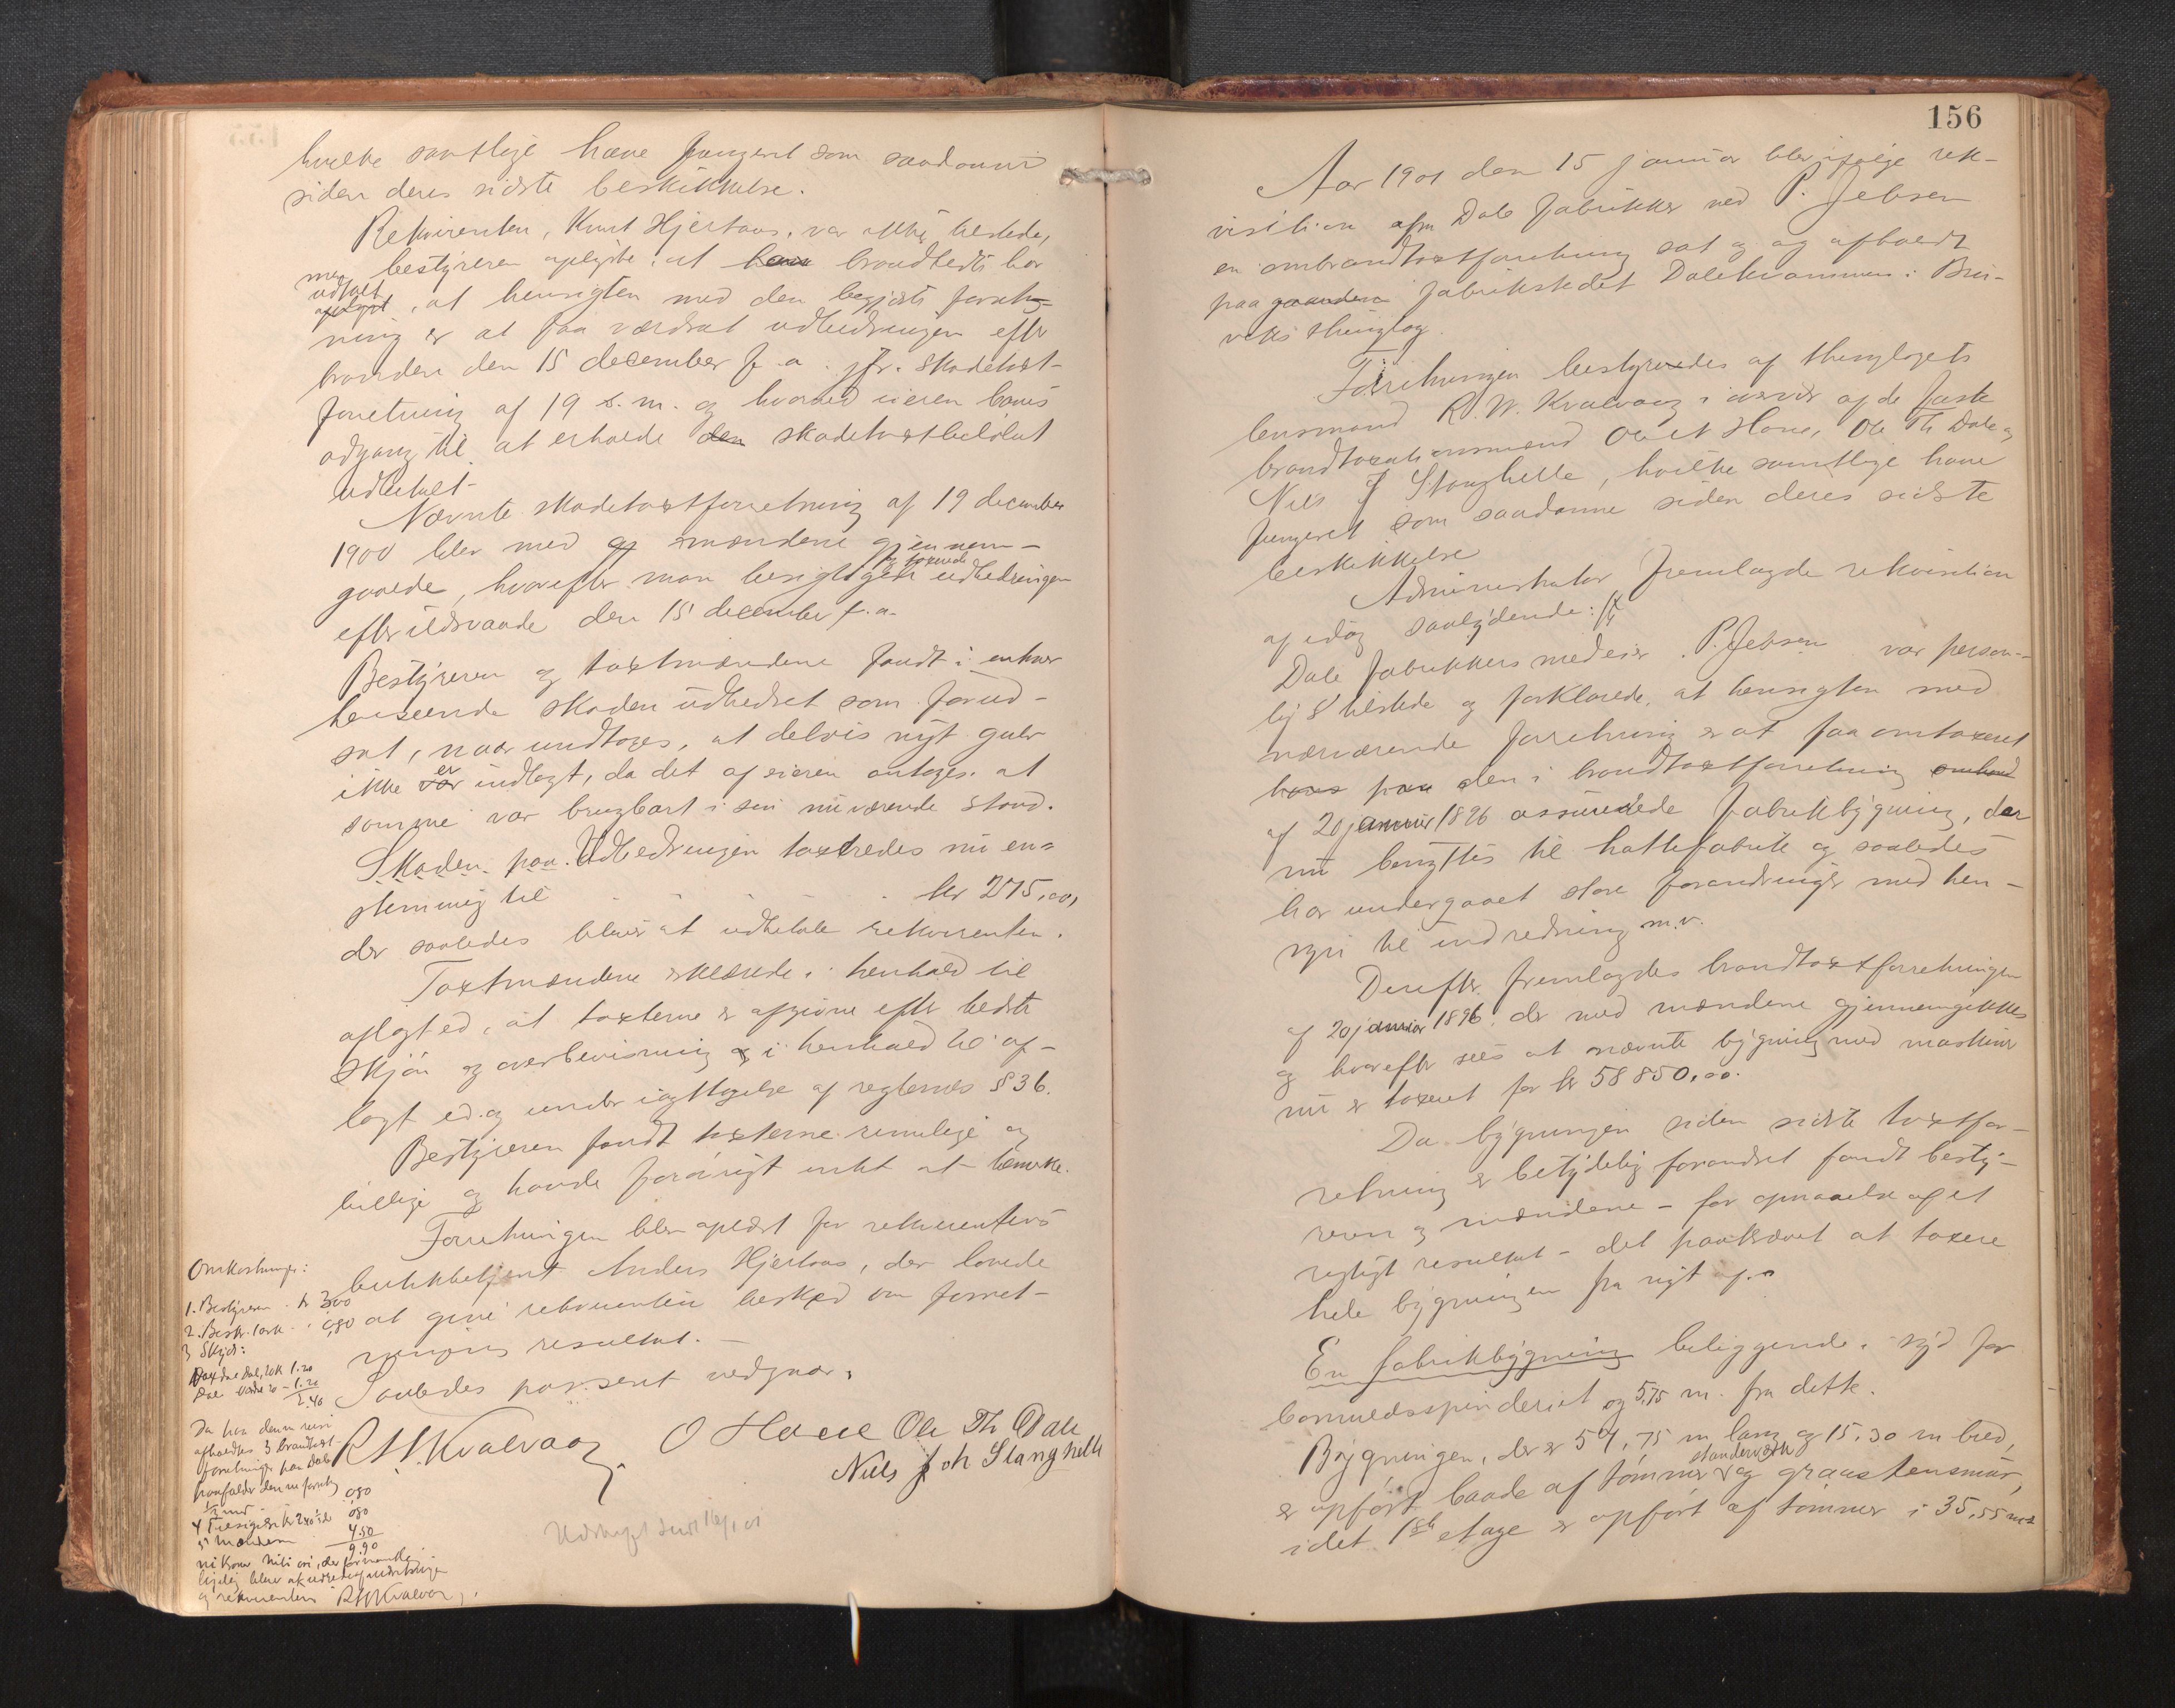 hvilke samtlige have fungeret som saadanne
siden deres sidste beskikkelse.
Rekvirenten, Knut Hjertaas, var ikke tilstede,
men bestyreren oplyste, at han brandledte har
udtalt
oplyst, at hensigten med den begjærte forret-
ning er at faa værdsat udbedringen efter
branden den 15 december f. a. jfr. skadetaxt-
forretning af 19 s. m. og hvorved eieren
adgang til at erholde den skadetaxtbeløbet
udbetalt.
Nævnte skadetaxtforretning af 19 december
1900 blev med mændene gjennem-
og taxerede
gaaede, hvorefter man besigtigede udbedringen
efter ildsvaade den 15 december f. a.
Bestyreren og taxtmændene fandt i enhver
henseende skaden udbedret som forud-
sat, naar undtages, at delvis nyt gulv
ikke var er indlagt, da det af eieren antages, at
samme var brugbart i sin nuværende stand.
Skaden paa Udbedringen taxeredes nu en-
stemmig til kr 275,00,
der saaledes bliver at udbetale rekvirenten.
Taxtmændene erklærede i henhold til
aflagt ed, at taxterne er afgivne efter bedste
skjøn og overbevisning og i henhold til af-
lagt ed og under iagttagelse af reglernes § 36.
Bestyreren fandt taxterne rimelige og
billige og havde forøvrigt intet at bemerke.
Forretningen blev oplæst for rekvirentens
butikbetjent Anders Hjertaas, der lovede
at give rekvirenten besked om forret-
ningens resultat.
Saaledes passeret vedgaar.
R. W. Kvalvaag O Houe Ole Th Dale
Niels Joh Stanghelle
Omkostninger:
1. Bestyreren kr 3,00
2. Beskr. 1 ark 0,80
3 Skyds:
Vaxdal Dale, 20 k 1.20
Dale 20 - 1.20
2.40
Da paa denne reise
afholdtes 3 brandtaxt-
forretninger paa Dale
paafalder denne forretn
1/3 med 0,80
4 Tilsigelse kr 2.40 1/3 080
5 Mændene 4.50
9.90
ni kroner niti øre, der
R W Kvalvaag.
Udskrift sendt 16/1 01
156
Aar 1901 den 15 januar blev ifølge rek-
visition afm Dale fabrikker ved P. Jebsen
en ombrandtaxtforretning sat og og afholdt
paa gaarden fabrikstedet Dalekvammen i Bru-
viks thinglag.
Forretningen bestyredes af thinglagets
lensmand R. W. Kvalvaag i overvær af de faste
brandtaxationsmænd Ole N Houe, Ole Th Dale og
Nils J Stanghelle, hvilke samtlige have
fungeret som saadanne siden deres sidste
beskikkelse
Administrator fremlagde rekvisition
af idag saalydende:
Dale fabrikkers medeier P. Jebsen var person-
lig tilstede og forklarede, at hensigten med
nærværende forretning er at faa omtaxeret
hans paa den i brandtaxtforretning
af 20 januar 1896 assurerede fabrikbygning, der
nu benyttes til hattefabrik og saaledes
har undergaaet store forandringer med hen-
syn til indredning m. v.
Derefter fremlagdes brandtaxtforretningen
af 20 januar 1896 der med mændene gjennemgikkes
og hvorefter sees at nævnte bygning med maskiner
nu er taxeret for kr 58 850,00.
Da bygningen siden sidste taxtfor-
retning er betydelig forandret fandt besty-
reren og mændene - for opnaaelse af et
rigtigt resultat - det paakrævet at taxere
hele bygningen fra nyt af.
En fabrikbygning beliggende syd for
bomuldsspinderiet og 5,75 m. fra dette.
Bygningen, der er 54,75 m lang og 15.30 m bred,
standerværk
er opført baade af tømmer og graastensmur,
idet 1ste etage er opført af tømmer i 35,55 m